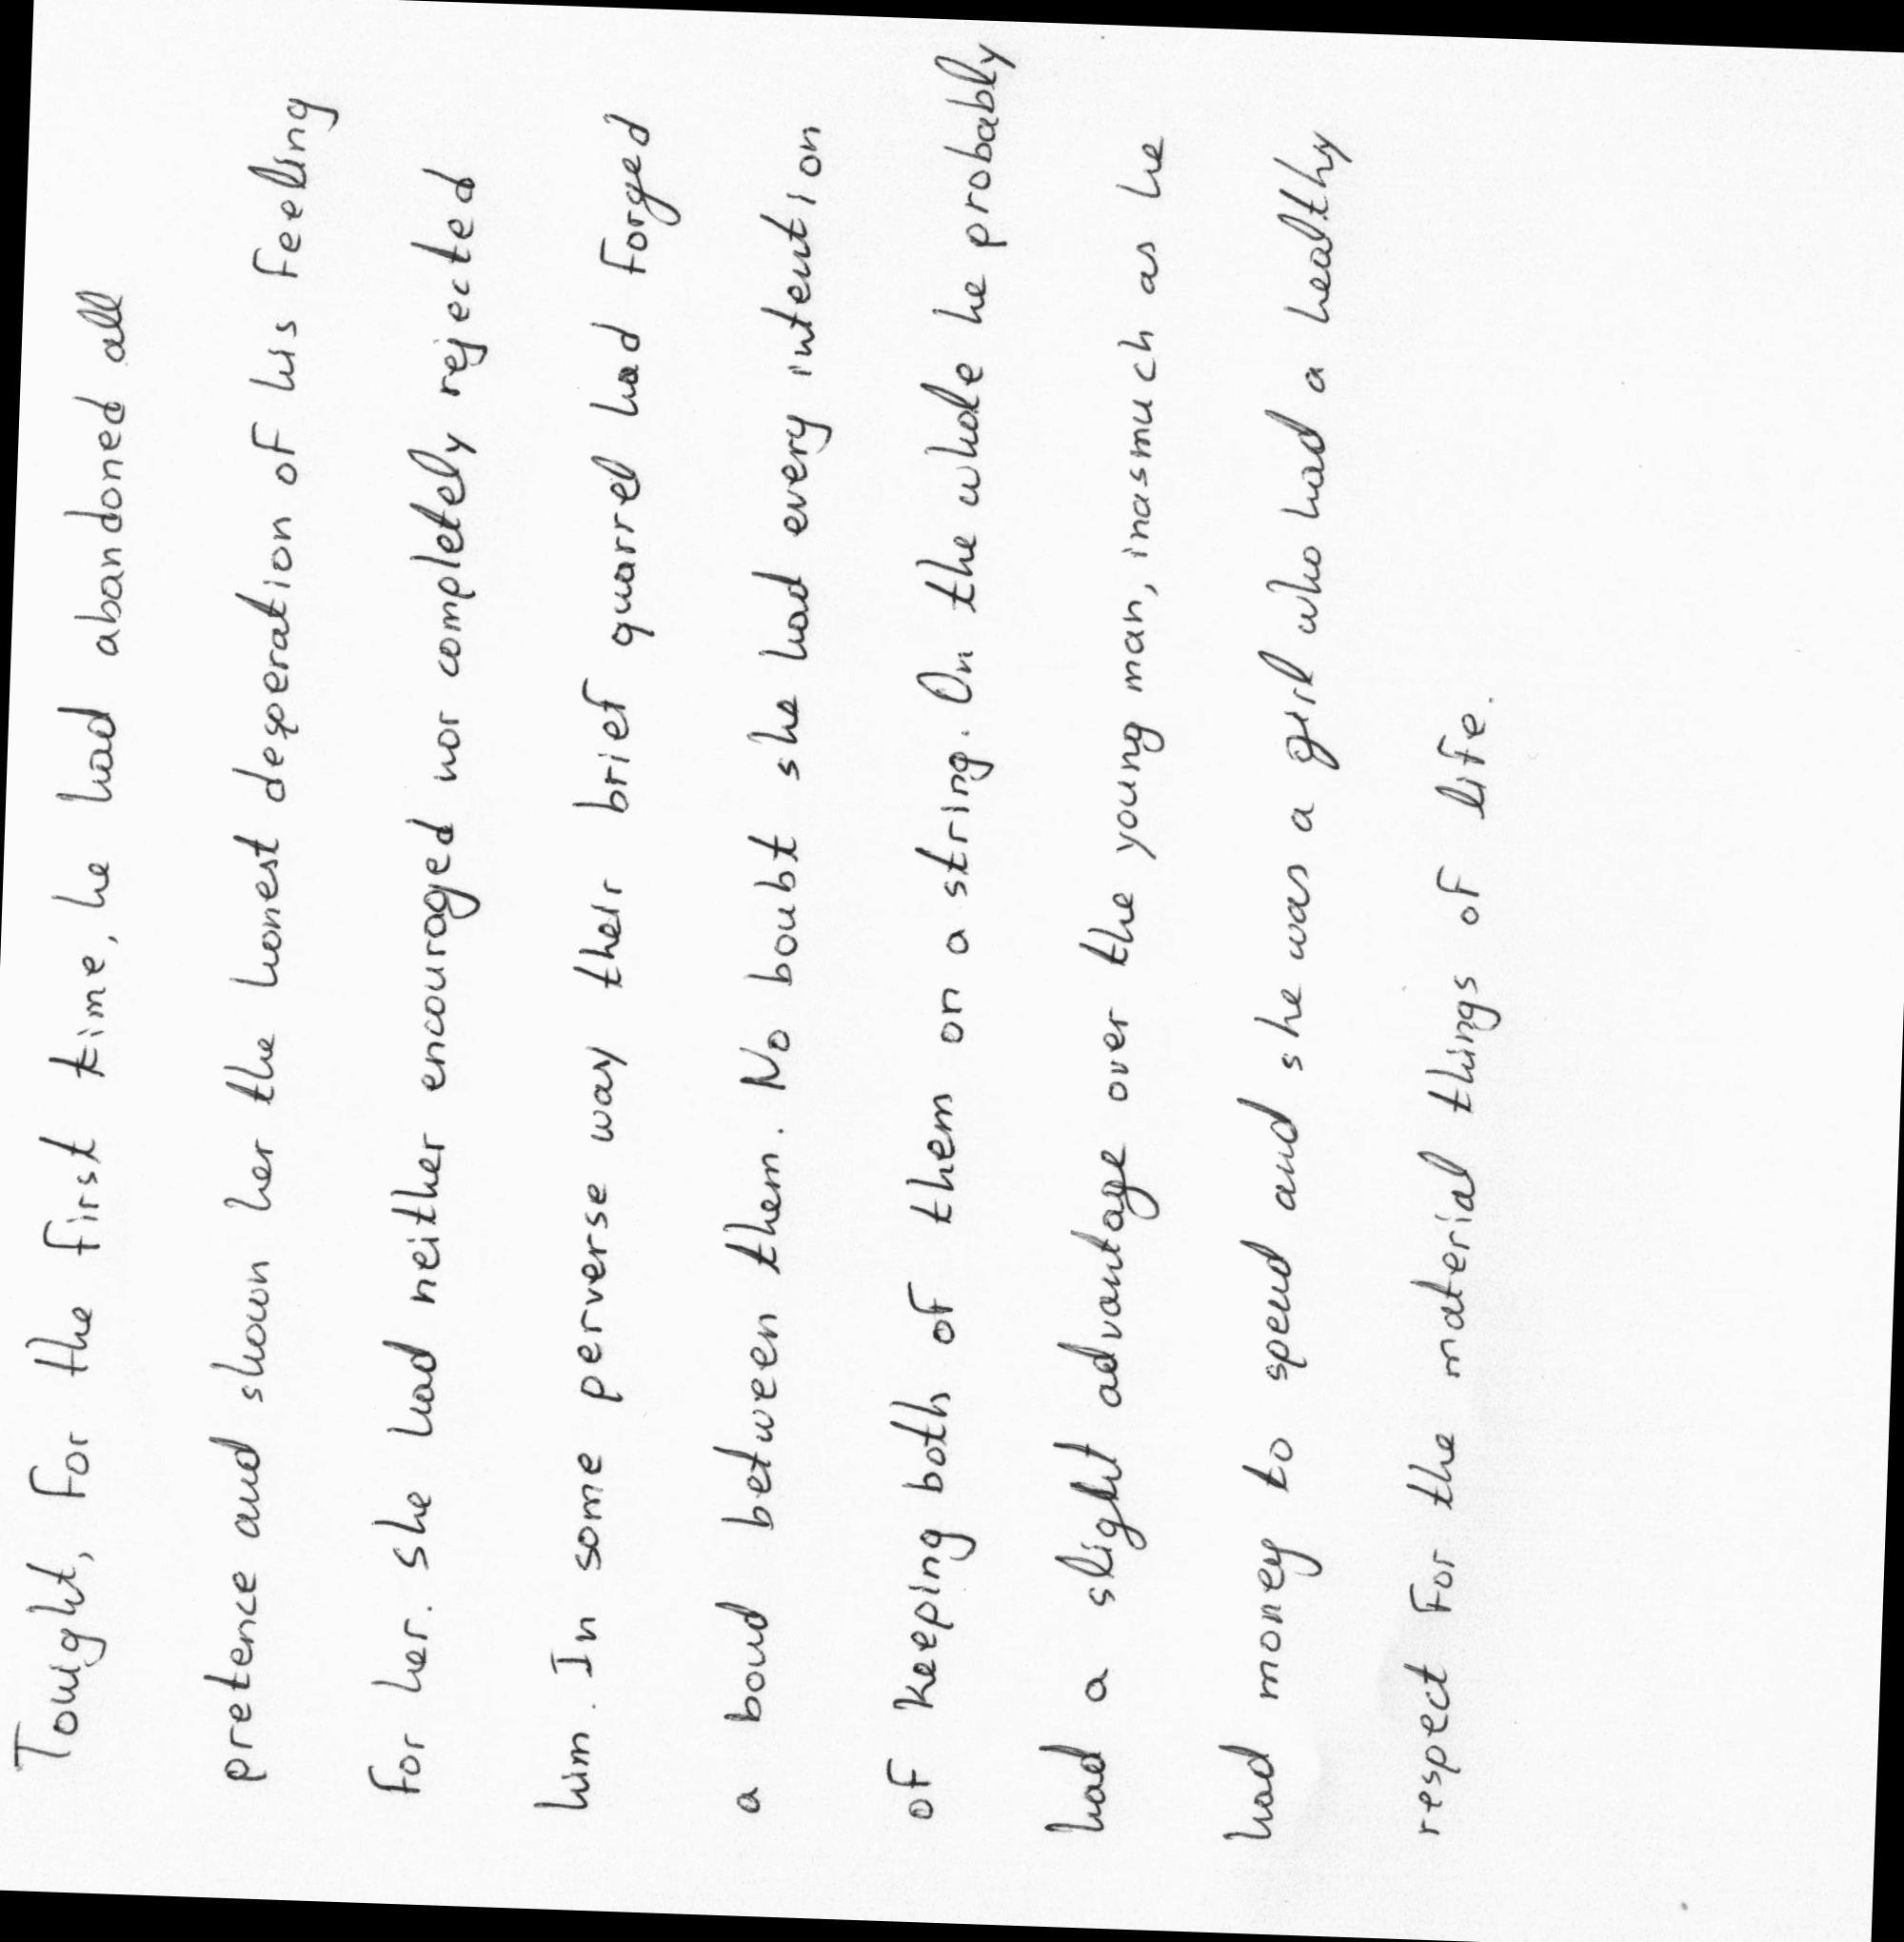 Tonight, for the first time, he had abandoned all
pretence and shown her the honest desperation of his feeling
for her. She had neither encouraged nor completely rejected
him. In some perverse way their brief quarrel had forged
a bond between them. No boubt she had every intention
of keeping both of them on a string. On the whole he probably
had a slight advantage over the young man, inasmuch as he
had money to spend and she was a girl who had a healthy
respect for the material things of life.